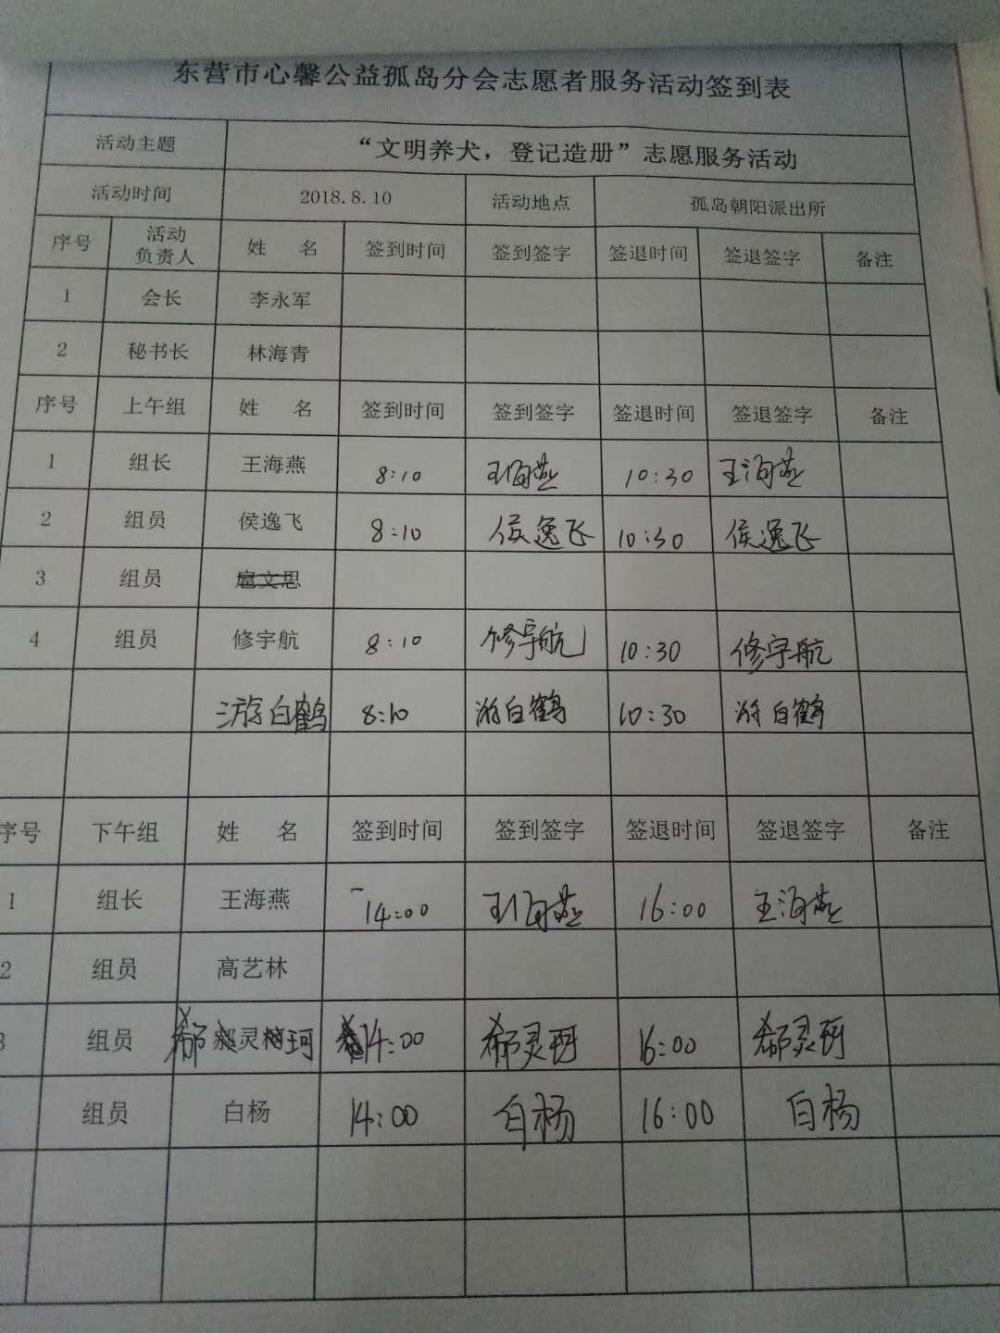 东营市心馨公益孤岛分会志愿者服务活动签到表
活动主题 “文明养犬，登记造册”志愿服务活动
活动时间 2018.8.10 活动地点 孤岛朝阳派出所
序号 活动负责人 姓 名 签到时间 签到签字 签退时间 签退签字 备注
1 会长 李永军
2 秘书长 林海青
序号 上午组 姓 名 签到时间 签到签字 签退时间 签退签字 备注
1 组长 王海燕 8:10 王海燕 10:30 王海燕
2 组员 侯逸飞 8:10 侯逸飞 10:30 侯逸飞
3 组员 文思
4 组员 修宇航 8:10 修宇航 10:30 修宇航
游白鹤 8:10 游白鹤 10:30 游白鹤
序号 下午组 姓 名 签到时间 签到签字 签退时间 签退签字 备注
1 组长 王海燕 14:00 王海燕 16:00 王海燕
2 组员 高艺林
3 组员 郗灵珂 14:00 郗灵珂 16:00 郗灵珂
组员 白杨 14:00 白杨 16:00 白杨